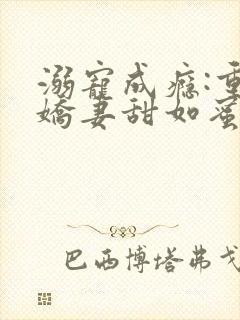 溺寵成癮:重
嬌妻甜如蜜
巴西博塔弗戈